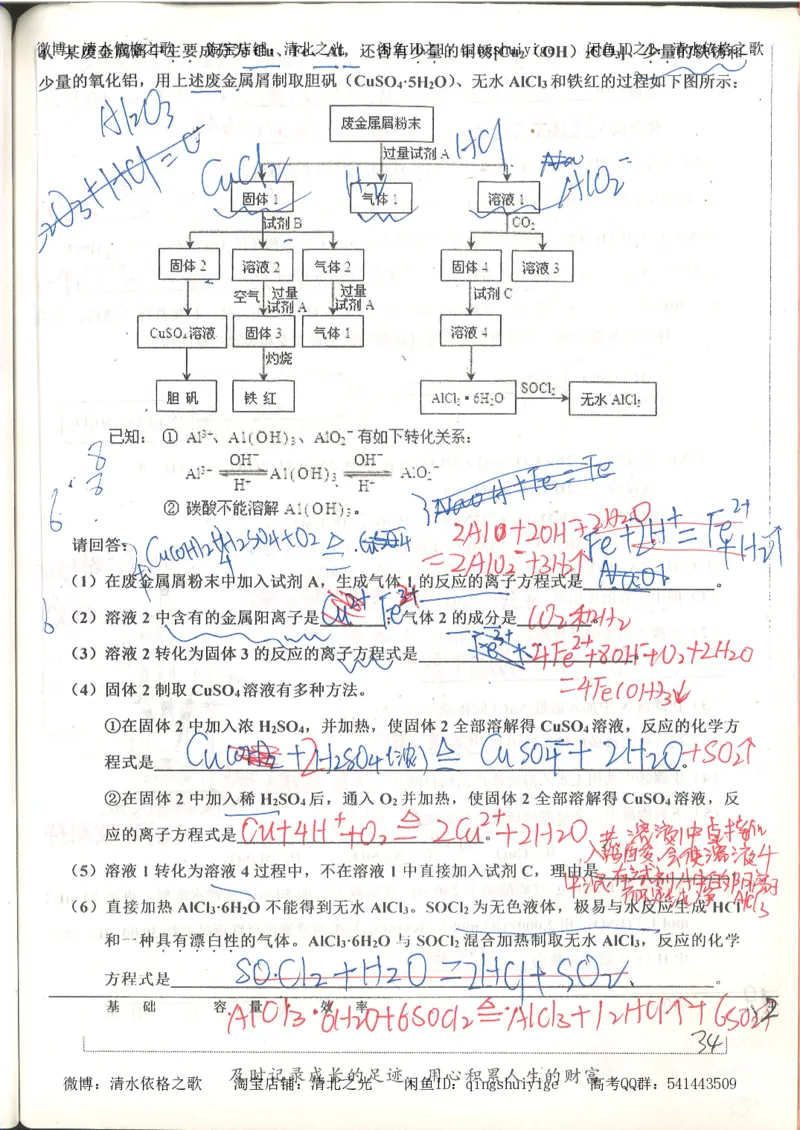 微博：清水依格之歌 淘宝店铺：清北之光 闲鱼ID：qingshuiyige 闲鱼ID之2：清水依格之歌
4、某废金属屑中主要成分为 Cu、Fe、Al，还含有少量的铜锈[Cu₂（OH）₂CO₃]、少量的铁锈和
少量的氧化铝，用上述废金属屑制取胆矾（CuSO₄·5H₂O）、无水 AlCl₃ 和铁红的过程如下图所示：
Al2O3
废金属屑粉末
过量试剂 A HCl
CuCl2
H2
AlO2⁻
固体 1 气体 1 溶液 1
试剂 B CO₂
固体 2 溶液 2 气体 2 固体 4 溶液 3
空气 过量试剂 A 过量试剂 A 试剂 C
CuSO₄ 溶液 固体 3 气体 1 溶液 4
灼烧
胆 矾 铁 红 AlCl₃·6H₂O SOCl₂ 无水 AlCl₃
已知： ① Al³⁺、Al(OH)₃、AlO₂⁻ 有如下转化关系：
OH⁻ OH⁻
Al³⁺ ⇌ Al(OH)₃ ⇌ AlO₂⁻
H⁺ H⁺
② 碳酸不能溶解 Al(OH)₃。
NaOH+Fe=Fe
2Al+2OH⁻+2H2O
=2AlO2⁻+3H2↑
Fe+2H⁺=Fe²⁺+H2↑
请回答：
（1）在废金属屑粉末中加入试剂 A，生成气体 1 的反应的离子方程式是 。
（2）溶液 2 中含有的金属阳离子是 Fe²⁺ ；气体 2 的成分是 CO2和H2
（3）溶液 2 转化为固体 3 的反应的离子方程式是 4Fe²⁺+8OH⁻+O2+2H2O
=4Fe(OH)3↓
（4）固体 2 制取 CuSO₄ 溶液有多种方法。
①在固体 2 中加入浓 H₂SO₄，并加热，使固体 2 全部溶解得 CuSO₄ 溶液，反应的化学方
程式是 Cu+2H2SO4(浓)≜CuSO4+2H2O+SO2↑
②在固体 2 中加入稀 H₂SO₄ 后，通入 O₂ 并加热，使固体 2 全部溶解得 CuSO₄ 溶液，反
应的离子方程式是 2Cu+4H⁺+O2≜2Cu²⁺+2H2O 。
（5）溶液 1 转化为溶液 4 过程中，不在溶液 1 中直接加入试剂 C，理由是
（6）直接加热 AlCl₃·6H₂O 不能得到无水 AlCl₃。SOCl₂ 为无色液体，极易与水反应生成 HCl
和一种具有漂白性的气体。AlCl₃·6H₂O 与 SOCl₂ 混合加热制取无水 AlCl₃，反应的化学
方程式是 SOCl2+H2O=2HCl+SO2 。
基 础 容 量 效 率
AlCl3·6H2O+6SOCl2≜AlCl3+12HCl↑+6SO2↑
34
及时记录成长的足迹 用心积累人生的财富
微博：清水依格之歌 淘宝店铺：清北之光 闲鱼ID：qingshuiyige 高考QQ群：541443509